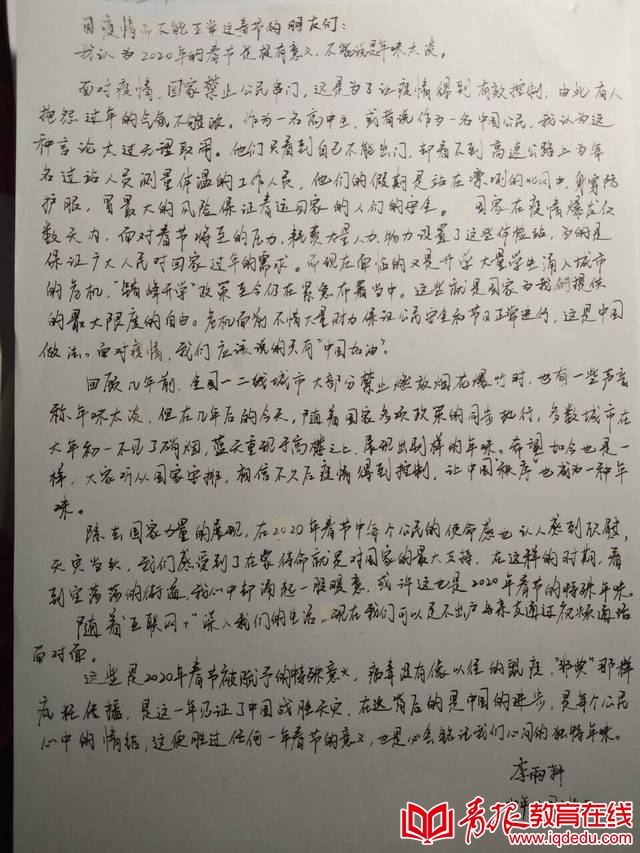 因疫情而不能正常过春节的朋友们:
我认为2020年的春节是很有意义,不能说是年味太淡。
面对疫情,国家禁止公民串门,这是为了让疫情得到有效控制,由此有人
抱怨过年的气氛不够浓。作为一名高中生,或者说作为一名中国公民,我认为这
种言论太过无理取闹。他们只看到自己不能出门,却看不到高速公路上为每
名过站人员测量体温的工作人员,他们的假期是站在凛冽的北风中,身穿防
护服,冒最大的风险保证着返回家的人们的安全。 国家在疫情爆发仅
数天内,面对春节将至的压力,耗费大量人力、物力设置了这些体检站,为的是
保证广大人民对回家过年的需求。而现在面临的又是开学大量学生涌入城市
的危机,“错峰开学”政策至今仍在紧急布署当中。这些就是国家为我们提供
的最大限度的自由。危机面前不惜大量财力保证公民安全和节日正常进行,这是中国
做法。面对疫情,我们应该说的只有“中国加油”。
回顾几年前,全国一二线城市大部分禁止燃放烟花爆竹时,也有一些声音
称年味太淡,但在几年后的今天,随着国家多项政策的同步执行,多数城市在
大年初一不见了硝烟,蓝天重现于高楼之上,展现出别样的年味。希望如今也是一
样,大家听从国家安排,相信不久后疫情得到控制,让中国“秩序”也成为一种年
味。
除去国家力量的展现,在2020年春节中每个公民的使命感也让人感到欣慰,
天灾当头,我们感受到了在家待命就是对国家的最大支持,在这样的时期,看
到空荡荡的街道,我心中却涌起一股暖意,或许这也是2020年春节的特殊年味。
随着“互联网+”深入我们的生活,现在我们可以足不出户与亲友通过视频通话
面对面。
这些是2020年春节被赋予的特殊意义,病毒没有像以往的鼠疫、“非典”那样
疯狂传播,是这一年见证了中国战胜天灾,在这背后的是中国的进步,是每个公民
心中的情结,这便胜过任何一年春节的意义,也是必会铭记我们心间的独特年味。
李雨轩
青报教育在线
www.iqdedu.com